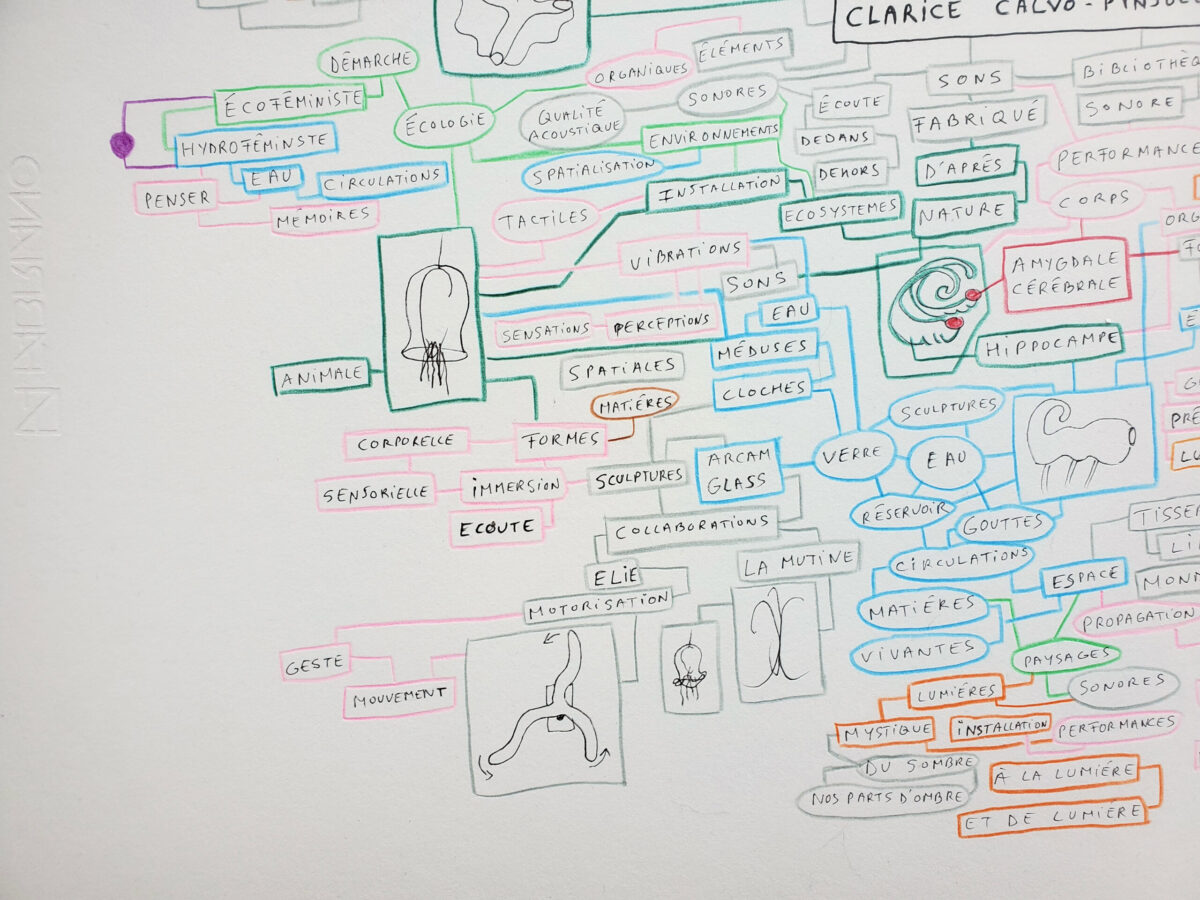 CLARICE CALVO-PINSOL
DÉMARCHE
ÉLÉMENTS
ORGANIQUES
SONS
ÉCOFÉMINISTE
ÉCOLOGIE
QUALITÉ
ACOUSTIQUE
SONORES
ÉCOUTE
FABRIQUÉ
SONORE
HYDROFÉMINISTE
ENVIRONNEMENTS
DEDANS
PERFORMANCE
EAU
CIRCULATIONS
SPATIALISATION
DEHORS
D'APRÈS
PENSER
MÉMOIRES
INSTALLATION
TACTILES
ECOSYSTÈMES
NATURE
CORPS
VIBRATIONS
SONS
AMYGDALE
CÉRÉBRALE
SENSATIONS
PERCEPTIONS
EAU
HIPPOCAMPE
MÉDUSES
ANIMALE
SPATIALES
CLOCHES
MATIÉRES
SCULPTURES
CORPORELLE
FORMES
ARCAM
GLASS
VERRE
EAU
SENSORIELLE
IMMERSION
SCULPTURES
RÉSERVOIR
GOUTTES
ECOUTE
COLLABORATIONS
CIRCULATIONS
LA MUTINE
ELIE
ESPACE
MOTORISATION
MATIÉRES
PROPAGATION
VIVANTES
PAYSAGES
GESTE
MOUVEMENT
LUMIÉRES
SONORES
MYSTIQUE
INSTALLATION
PERFORMANCES
DU SOMBRE
À LA LUMIÉRE
NOS PARTS D'OMBRE
ET DE LUMIÉRE